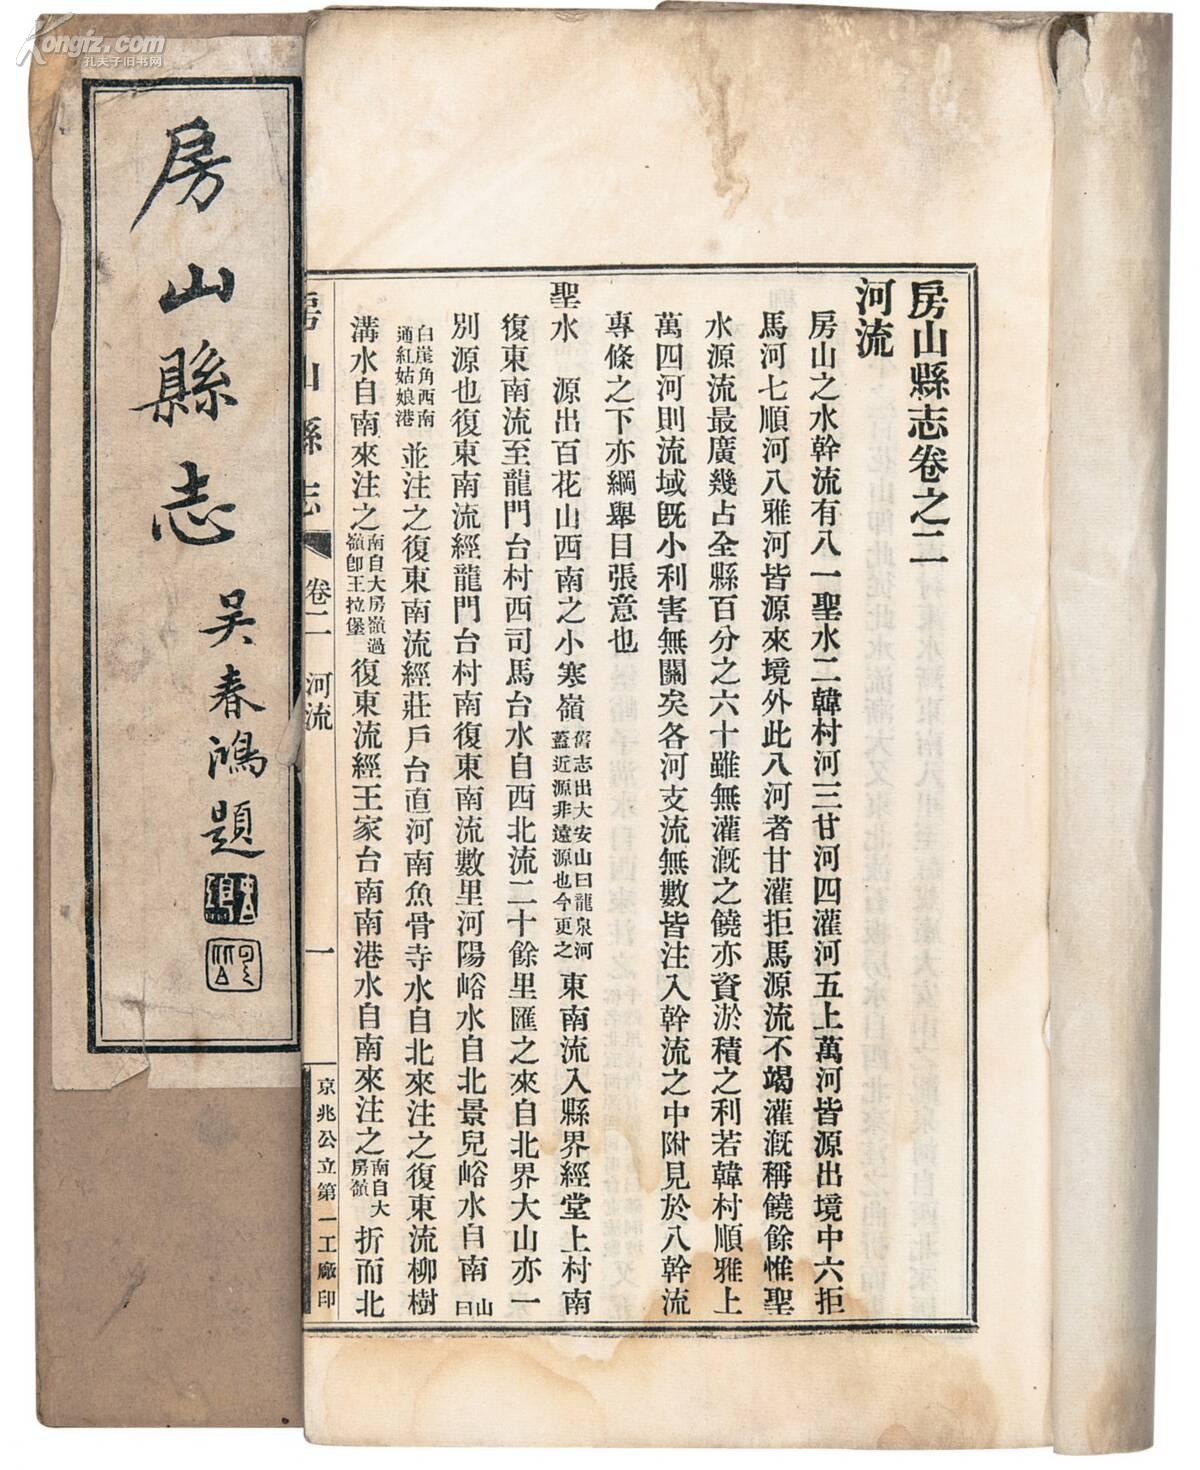 房山縣志卷之二
河流
房山之水幹流有八一聖水二韓村河三甘河四灌河五上萬河皆源出境中六拒
馬河七順河八雅河皆源來境外此八河者甘灌拒馬源流不竭灌溉稱饒餘惟聖
水源流最廣幾占全縣百分之六十雖無灌溉之饒亦資淤積之利若韓村順雅上
萬四河則流域既小利害無關矣各河支流無數皆注入幹流之中附見於八幹流
專條之下亦綱舉目張意也
聖水 源出百花山西南之小寒嶺舊志出大安山曰龍泉河蓋近源非遠源也今更之東南流入縣界經堂上村南
復東南流至龍門台村西司馬台水自西北流二十餘里匯之來自北界大山亦一
別源也復東南流經龍門台村南復東南流數里河陽峪水自北景兒峪水自南山曰
白崖角西南通紅姑娘港並注之復東南流經莊戶台直河南魚骨寺水自北來注之復東流柳樹
溝水自南來注之南自大房嶺過嶺卽王拉堡復東流經王家台南南港水自南來注之南自大房嶺折而北
房山縣志 卷二 河流 一 京兆公立第一工廠印
房山縣志
吴春鴻題
Kongfz.com
孔夫子旧书网